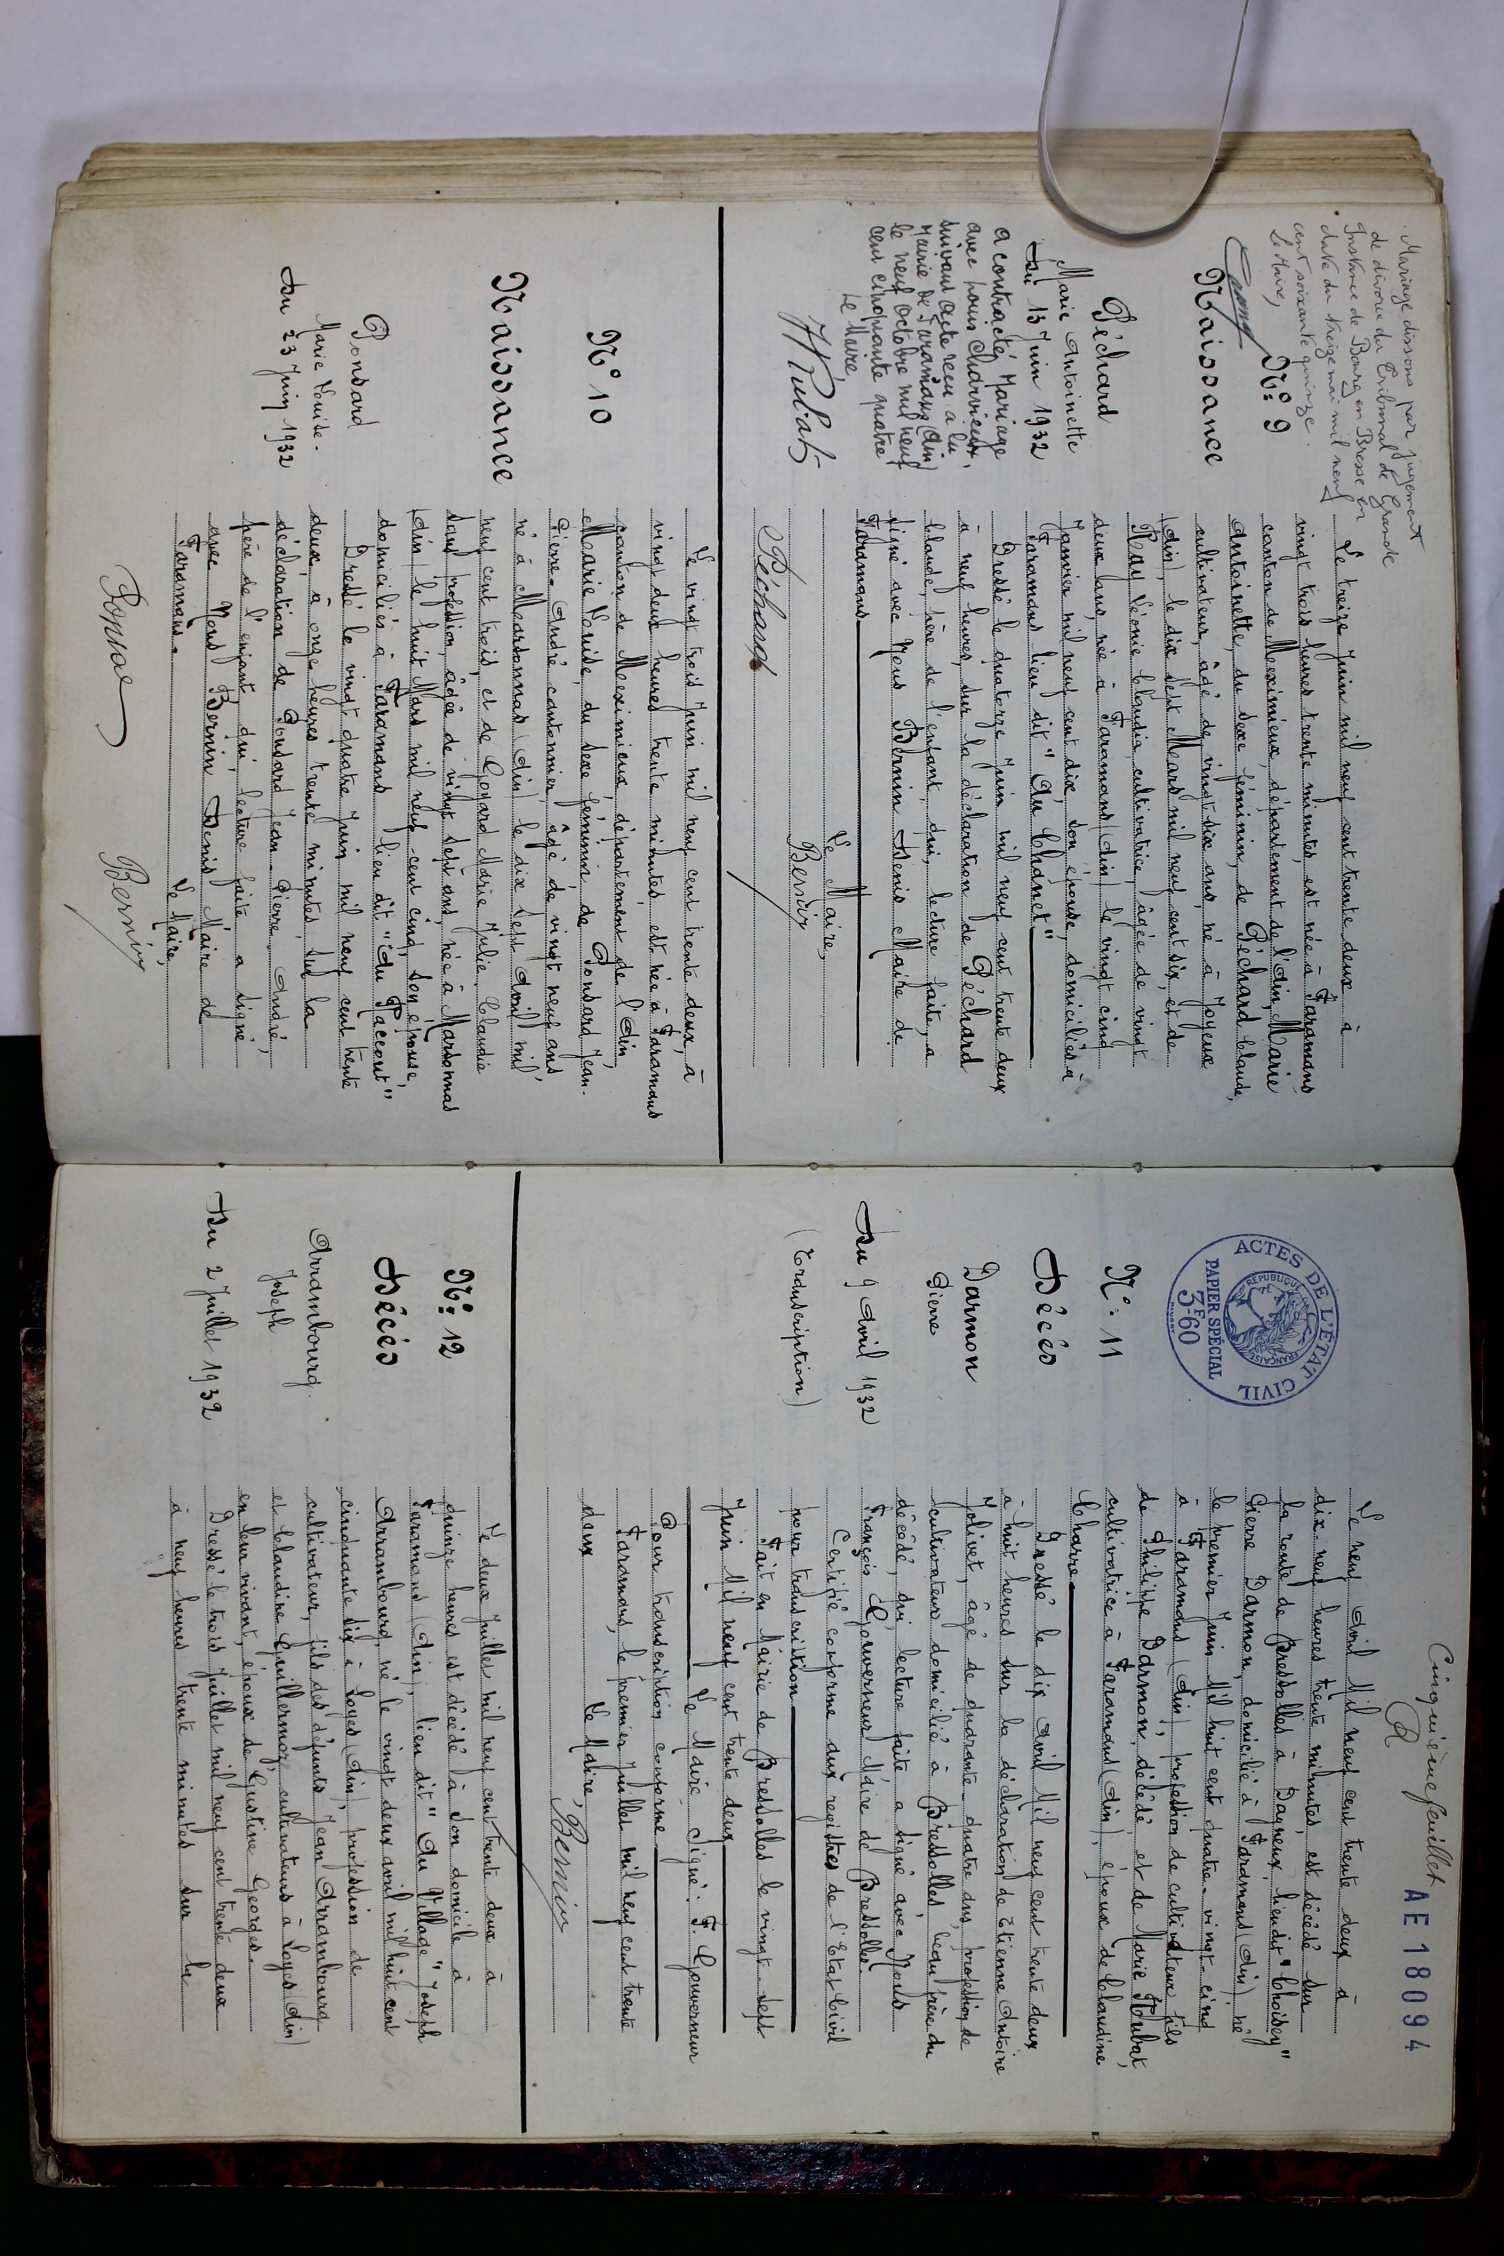 Mariage dissous par jugement
de divorce du Tribunal de Grande
Instance de Bourg en Bresse en
date du treize mai mil neuf
cent soixante quinze.
Le Maire,
N° 9
Naissance
Péchard
Marie Antoinette
Du 13 Juin 1932
a contracté Mariage
avec
suivant acte reçu à la
Mairie de Faramans (Ain)
le neuf octobre mil neuf
cent cinquante quatre
Le Maire,
Le treize Juin mil neuf cent trente deux à
vingt trois heures trente minutes, est née à Faramans,
canton de Meximieux, département de l'Ain, Marie
Antoinette, du sexe féminin, de Péchard Claude,
cultivateur, âgé de vingt-six ans, né à Joyeux
(Ain), le dix sept Mars mil neuf cent six, et de
Ray Léonie Claudia, cultivatrice, âgée de vingt
deux ans, née à Faramans (Ain) le vingt cinq
Janvier mil neuf cent dix, son épouse, domiciliés à
Faramans lieu dit "Au Chânet"
Dressé le quatorze Juin mil neuf cent trente deux
à neuf heures, sur la déclaration de Péchard
Claude, père de l'enfant, qui, lecture faite, a
signé avec Nous Bernin Denis Maire de
Faramans
Le Maire,
Péchard
Bernin
N° 10
Naissance
Ponsard
Marie Louise.
Du 23 Juin 1932
Le vingt trois Juin mil neuf cent trente deux, à
vingt deux heures trente minutes, est née à Faramans
canton de Meximieux, département de l'Ain,
Marie Louise, du sexe féminin, de Ponsard Jean-
Pierre-André, cantonnier, âgé de vingt neuf ans,
né à Marsonnas (Ain) le dix sept Avril mil
neuf cent trois, et de Goyard Marie Julie Claudie
sans profession, âgée de vingt sept ans, née à Marsonnas
(Ain) le huit Mars mil neuf-cent cinq, son épouse,
domiciliés à Faramans lieu dit "Au Paccout"
Dressé le vingt quatre Juin mil neuf cent trente
deux, à onze heures trente minutes sur la
déclaration de Ponsard Jean-Pierre-André,
père de l'enfant, qui, lecture faite, a signé
avec Nous Bernin Denis Maire de
Faramans.
Le Maire,
Ponsard
Bernin
Cinquième feuillet
AE 18094
ACTES DE L'ÉTAT CIVIL
RÉPUBLIQUE FRANÇAISE
PAPIER SPÉCIAL
3F60
N° 11
Décès
Darmon
Pierre
Du 9 Avril 1932
(Transcription)
Le neuf Avril Mil neuf cent trente deux à
dix-neuf heures trente minutes, est décédé sur
la route de Bressolles à Dagneux, lieudit "Choisey"
Pierre Darmon, domicilié à Faramans (Ain), né
le premier Juin Mil huit cent quatre-vingt-cinq
à Faramans (Ain), profession de cultivateur fils
de Philippe Darmon, décédé, et de Marie Aubat,
cultivatrice à Faramans (Ain), époux de Claudine
Charre
Dressé le dix Avril Mil neuf cent trente deux
à huit heures sur la déclaration de Etienne Antoine
Jolivet, âgé de quarante-quatre ans, profession de
cultivateur domicilié à Bressolles, beau frère du
décédé, qui, lecture faite a signé avec Nous
François Gouverneur Maire de Bressolles.
Certifié conforme aux registres de l'Etat Civil
pour transcription
Fait en Mairie de Bressolles le vingt-sept
Juin Mil neuf cent trente deux
Le Maire Signé: F. Gouverneur
Pour transcription conforme
Faramans, le premier Juillet mil neuf cent trente
deux
Le Maire,
Bernin
N° 12
Décès
Arrambourg
Joseph
Du 2 Juillet 1932
Le deux Juillet mil neuf cent trente deux à
quinze heures est décédé à son domicile à
Faramans (Ain), lieu dit "Au Village" Joseph
Arrambourg, né le vingt deux avril mil huit cent
cinquante six à Loyes (Ain), profession de
cultivateur, fils des défunts Jean Arrambourg
et Claudine Guillermoz cultivateurs à Loyes (Ain)
en leur vivant, époux de Justine Georges.
Dressé le trois Juillet mil neuf cent trente deux
à neuf heures trente minutes sur la